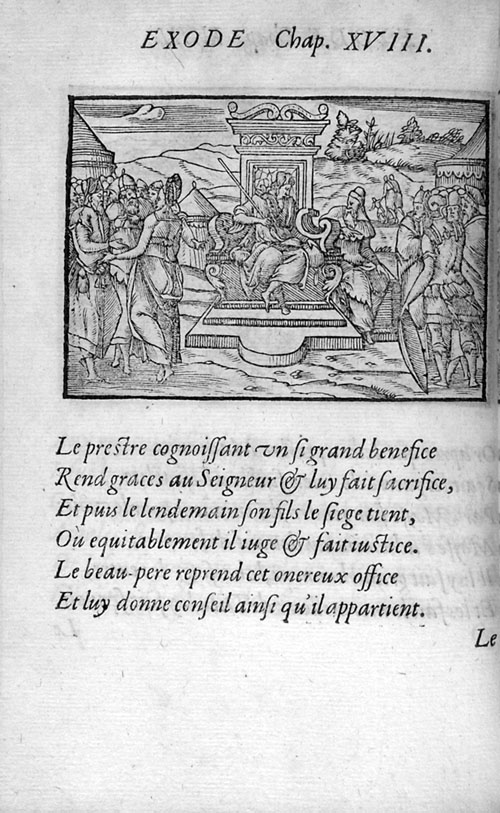 EXODE. Chap. XVIII.
Le prestre cognoissant vn si grand benefice
Rend graces au Seigneur & luy fait sacrifice,
Et puis le lendemain son fils le siege tient,
Où equitablement il iuge & fait iustice.
Le beau-pere reprend cet onereux office
Et luy donne conseil ainsi qu'il appartient.
Le